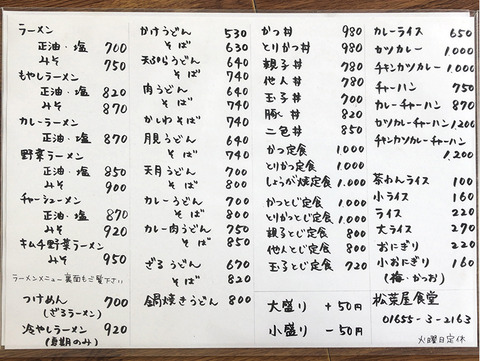 ラーメン
正油・塩 700
みそ 750
もやしラーメン
正油・塩 820
みそ 870
カレーラーメン
正油・塩 870
野菜ラーメン
正油・塩 850
みそ 900
チャーシューメン
正油・塩 870
みそ 920
キムチ野菜ラーメン
みそ 950
ラーメンメニュー裏面もご覧下さい
つけめん 700
(ざるラーメン)
冷やしラーメン 920
(夏期のみ)
かけうどん 530
そば 630
天ぷらうどん 640
そば 740
肉うどん 640
そば 740
かしわそば 740
月見うどん 640
そば 740
天月うどん 700
そば 800
カレーうどん 700
そば 800
カレー肉うどん 750
そば 850
ざるうどん 670
そば 820
鍋焼きうどん 800
かつ丼 980
とりかつ丼 980
親子丼 780
他人丼 780
玉子丼 720
豚丼 820
二色丼 850
かつ定食 1.000
とりかつ定食 1.000
しょうが焼定食 1.000
かつとじ定食 1.000
とりかつとじ定食 1.000
親子とじ定食 800
他人とじ定食 800
玉子とじ定食 720
大盛り +50円
小盛り -50円
カレーライス 650
カツカレー 1.000
チキンカツカレー 1.000
チャーハン 750
カレーチャーハン 870
カツカレーチャーハン 1.200
チキンカツカレーチャーハン
1.200
茶わんライス 100
小ライス 160
ライス 220
大ライス 270
おにぎり 220
小おにぎり 160
(梅・かつお)
松葉屋食堂
01655-3-2163
火曜日定休